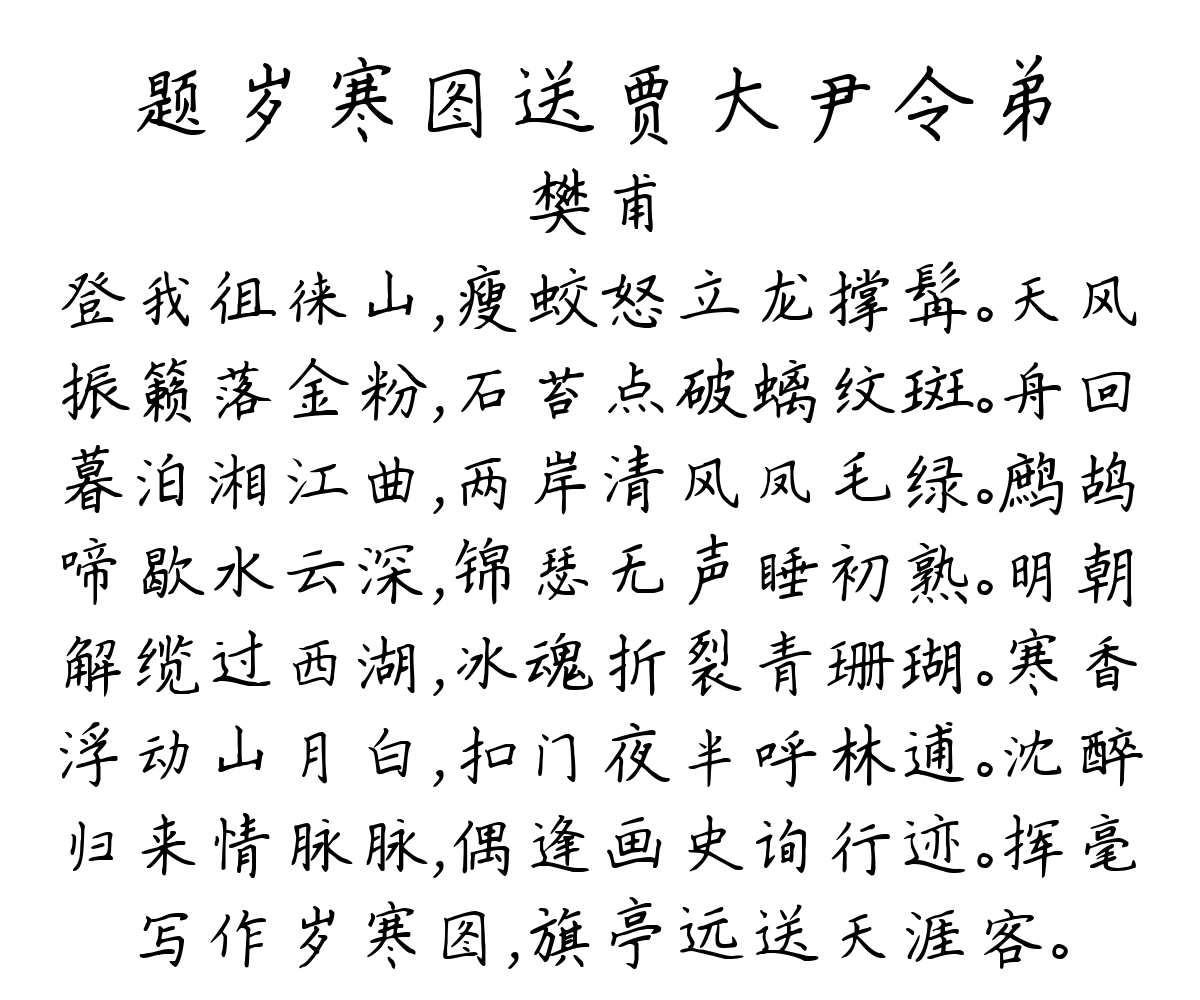 题岁寒图送贾大尹令弟
樊甫
登我徂徕山,瘦蛟怒立龙撑髯。天风
振籁落金粉,石苔点破螭纹斑。舟回
暮泊湘江曲,两岸清风凤毛绿。鹧鸪
啼歇水云深,锦瑟无声睡初熟。明朝
解缆过西湖,冰魂折裂青珊瑚。寒香
浮动山月白,扣门夜半呼林逋。沈醉
归来情脉脉,偶逢画史询行迹。挥毫
写作岁寒图,旗亭远送天涯客。